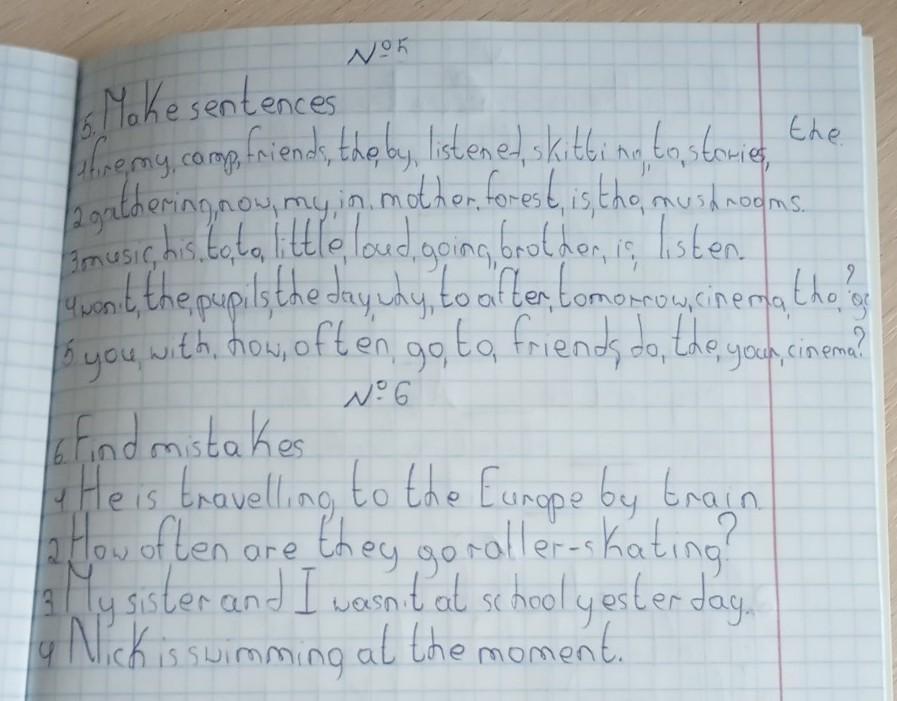 №5
5. Make sentences
1 fire, my, camp, friends, the, by, listened, skitting, to, stories, the
2 gathering, now, my, in, mother, forest, is, the, mushrooms.
3 music, his, to, to, little, loud, going, brother, is, listen.
4 won't, the, pupils, the day, why, to after, tomorrow, cinema, the, go?
5 you, with, how, often, go, to, friends, do, the, your, cinema?
№6
6. Find mistakes
1 He is travelling to the Europe by train.
2 How often are they go roller-skating?
3 My sister and I wasn't at school yesterday.
4 Nick is swimming at the moment.